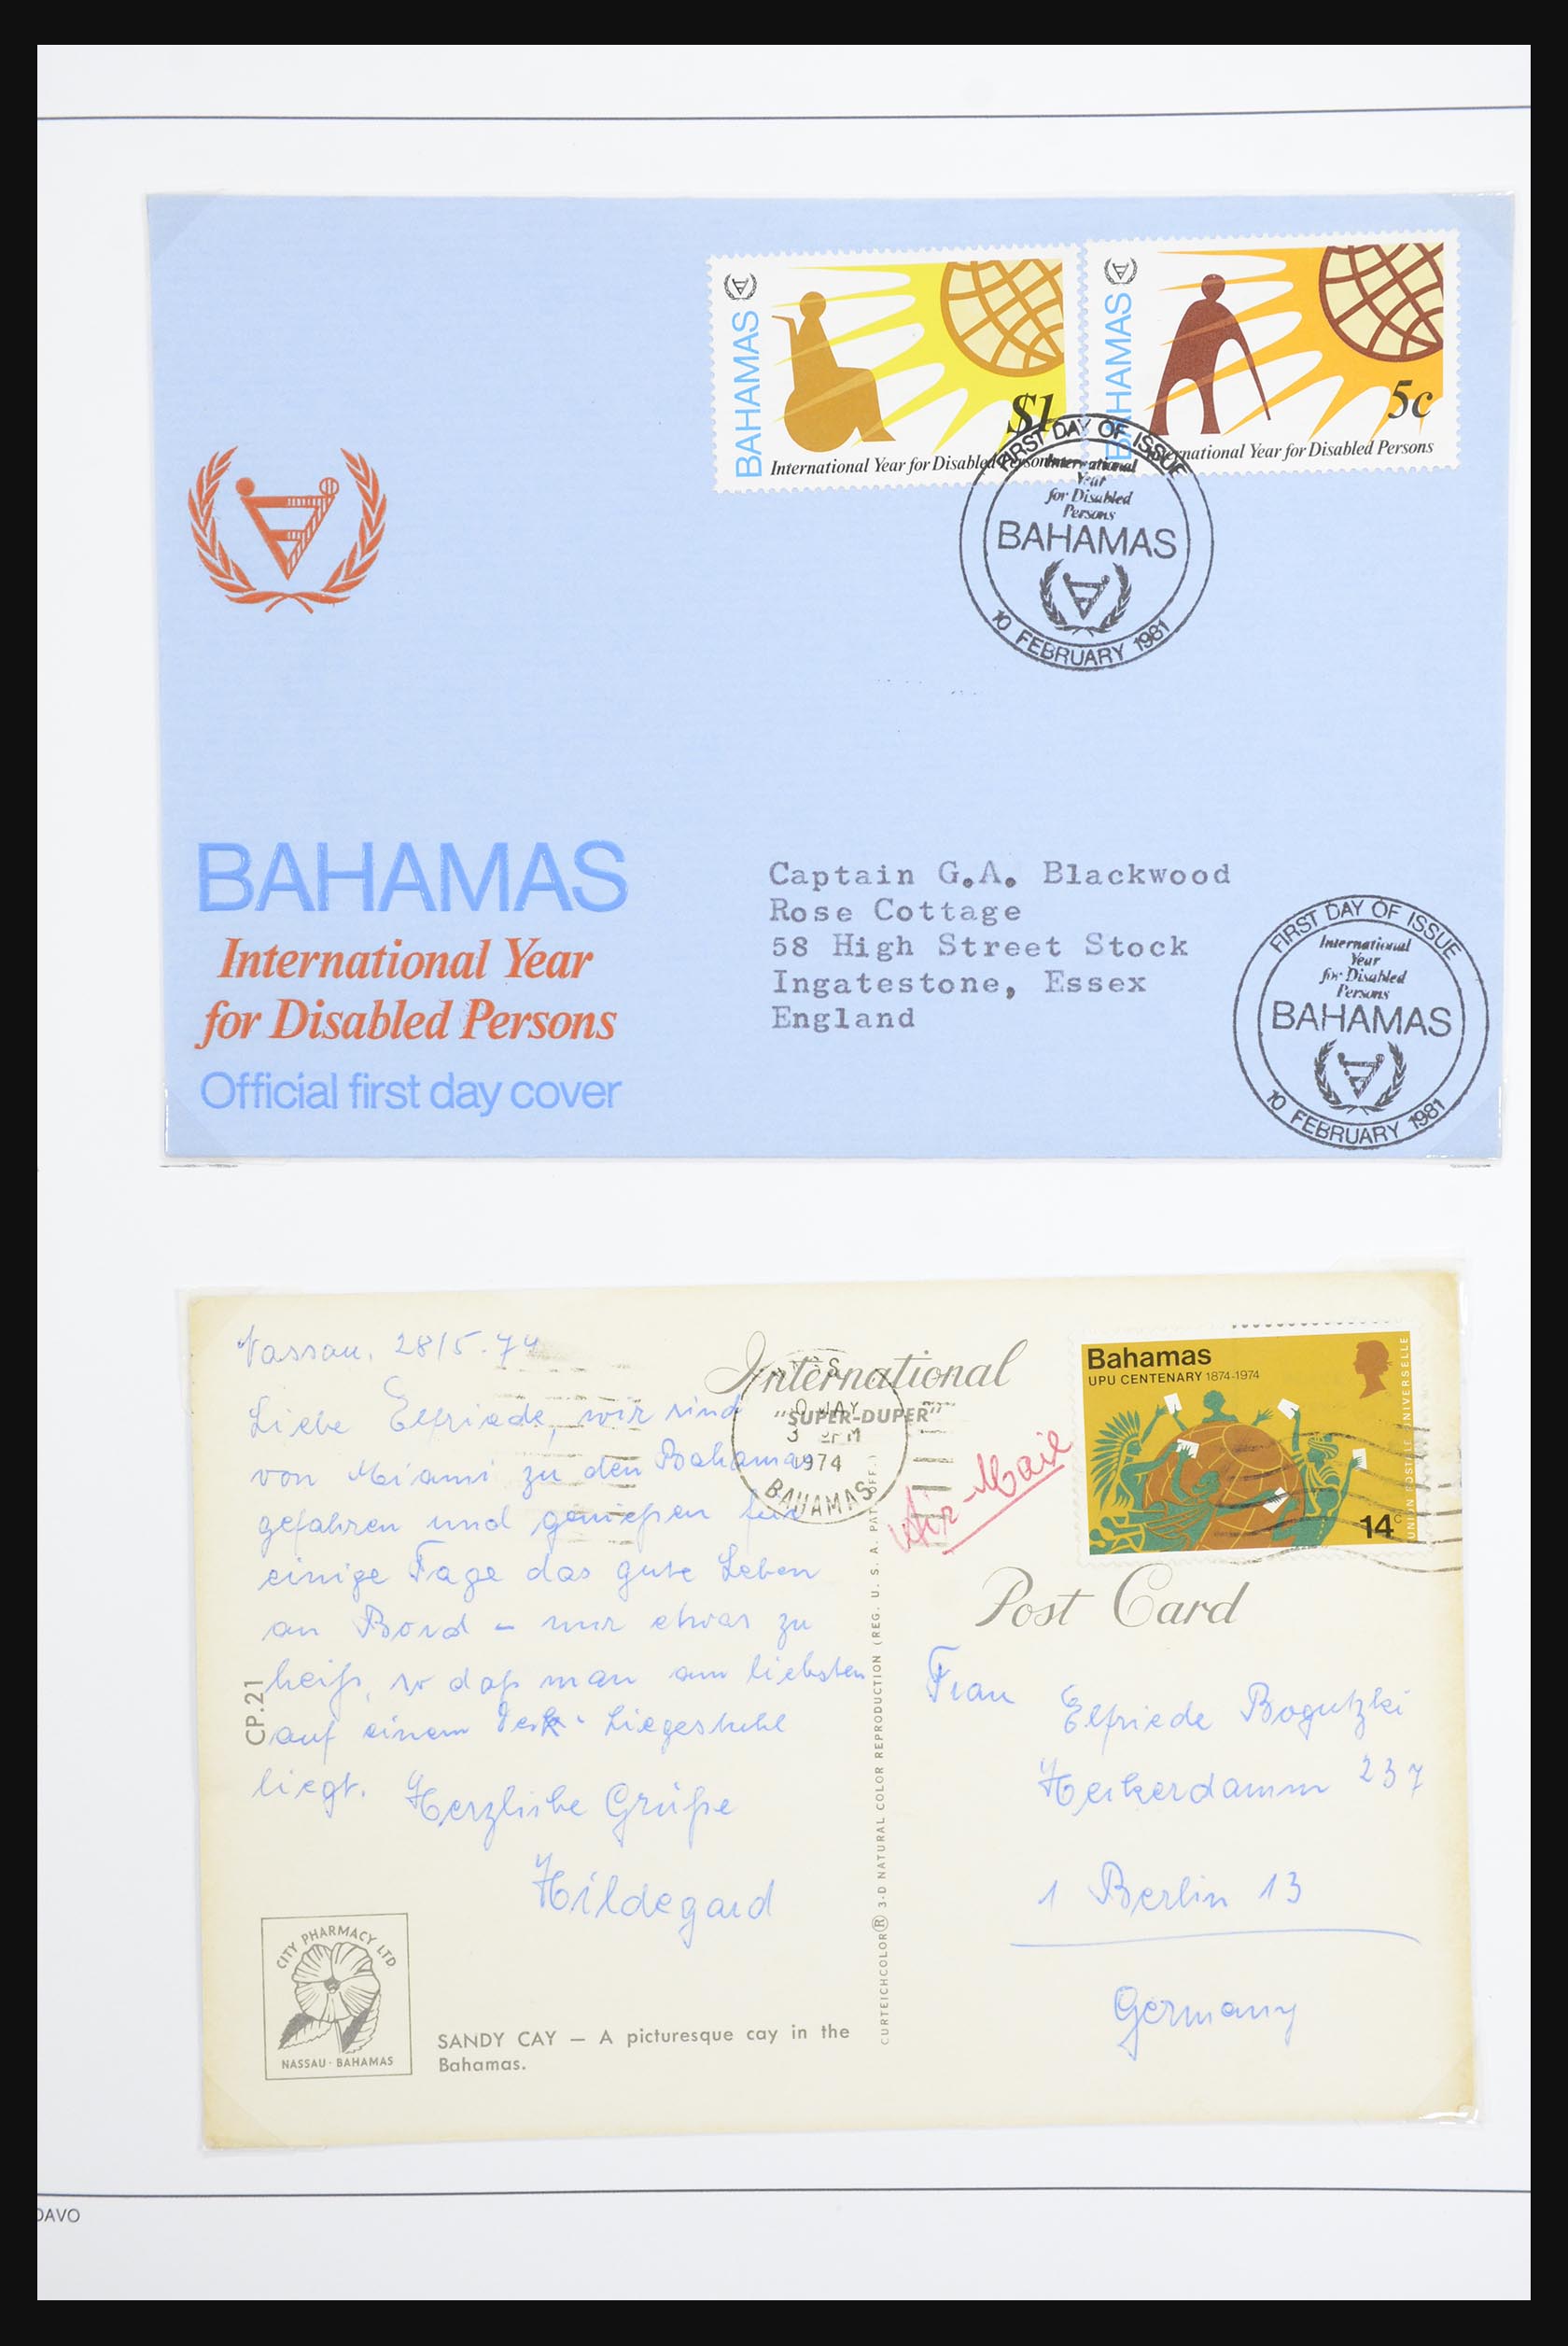 BAHAMAS
$1
International Year for Disabled Persons
BAHAMAS
5c
International Year for Disabled Persons
FIRST DAY OF ISSUE
International
Year
for Disabled
Persons
BAHAMAS
10 FEBRUARY 1981
BAHAMAS
International Year
for Disabled Persons
Official first day cover
Captain G.A. Blackwood
Rose Cottage
58 High Street Stock
Ingatestone, Essex
England
FIRST DAY OF ISSUE
International
Year
for Disabled
Persons
BAHAMAS
10 FEBRUARY 1981
Nassau, 28/5.74
Liebe Elfriede, wir sind
von Miami zu den Bahamas
gefahren und genießen für
einige Tage das gute Leben
an Bord – nur etwas zu
heiß, so daß man am liebsten
auf einem Liegestuhl
liegt. Herzliche Grüße
Hildegard
CP.21
CITY PHARMACY LTD
NASSAU · BAHAMAS
SANDY CAY — A picturesque cay in the
Bahamas.
International
"SUPER-DUPER"
MAY
PM
1974
BAHAMAS
Air-Mail
CURTEICHCOLOR® 3-D NATURAL COLOR REPRODUCTION (REG. U. S. A. PAT. OFF.)
Bahamas
UPU CENTENARY 1874-1974
UNION POSTALE UNIVERSELLE
14c
Post Card
Frau
Elfriede Bogutzki
Heckerdamm 237
1 Berlin 13
Germany
DAVO